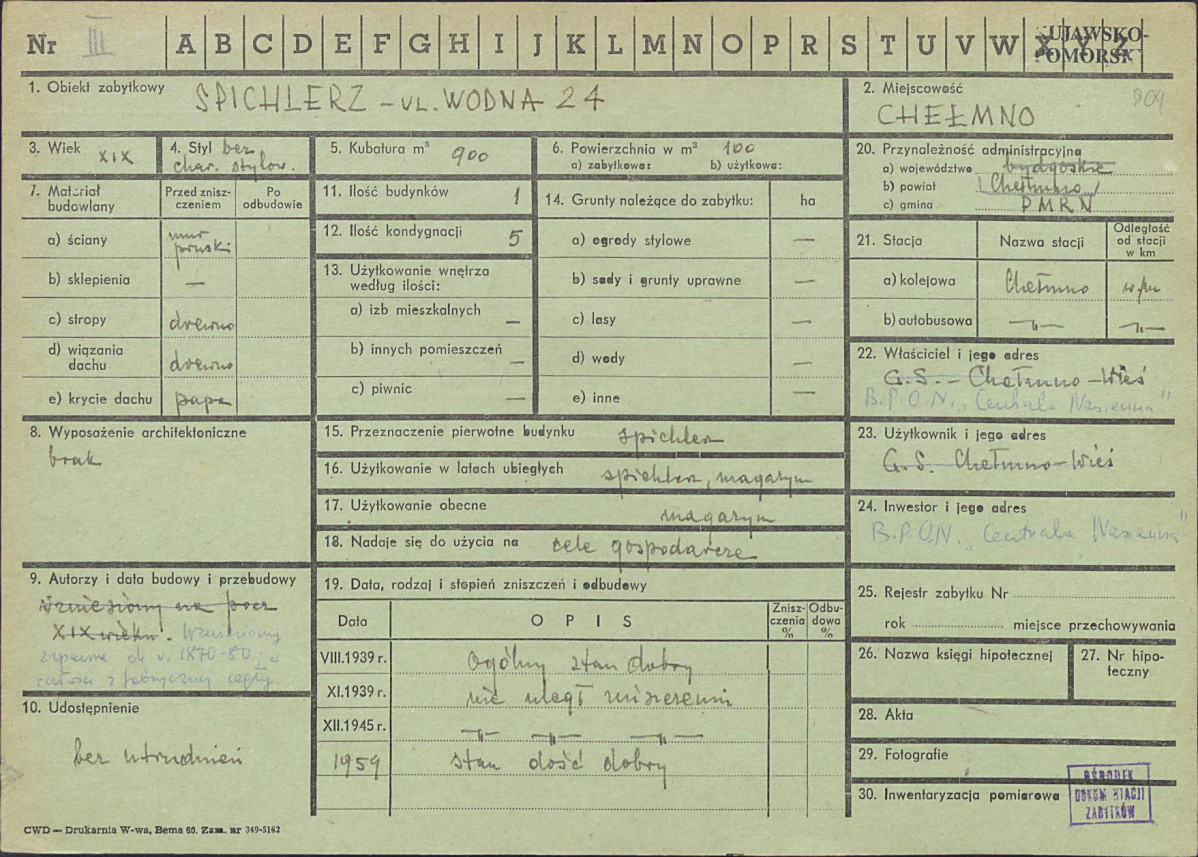 Nr III A B C D E F G H I J K L M N O P R S T U V W X Y Z
UJAWSKO-
POMORSK
1. Obiekt zabytkowy
SPICHLERZ - UL. WODNA 24
2. Miejscowość
809
CHEŁMNO
3. Wiek
XIX
4. Styl bez
char. stylow.
5. Kubatura m³
900
6. Powierzchnia w m² 100
a) zabytkowa: b) użytkowa:
7. Materiał
budowlany
Przed znisz-
czeniem
Po
odbudowie
a) ściany mur
pruski
b) sklepienia —
c) stropy drewno
d) wiązania
dachu drewno
e) krycie dachu papa
8. Wyposażenie architektoniczne
brak
9. Autorzy i data budowy i przebudowy
Wzniesiony na pocz
XIX wieku. Wzniesiony
zapewne ok r. 1870-80.
całość z fabrycznej cegły
10. Udostępnienie
bez utrudnień
11. Ilość budynków 1
12. Ilość kondygnacji 5
13. Użytkowanie wnętrza
według ilości:
a) izb mieszkalnych —
b) innych pomieszczeń —
c) piwnic —
14. Grunty należące do zabytku: ha
a) ogrody stylowe —
b) sady i grunty uprawne —
c) lasy —
d) wody —
e) inne —
15. Przeznaczenie pierwotne budynku spichlerz
16. Użytkowanie w latach ubiegłych spichlerz, magazyn
17. Użytkowanie obecne magazyn
18. Nadaje się do użycia na cele gospodarcze
19. Data, rodzaj i stopień zniszczeń i odbudowy
Data OPIS
Znisz-
czenia
%
Odbu-
dowa
%
VIII.1939 r. Ogólny stan dobry
XI.1939 r. nie uległ zniszczeniu
XII.1945 r. —"— —"— —"—
1959 stan dość dobry
20. Przynależność administracyjna
a) województwo bydgoskie
b) powiat (Chełmno)
c) gmina P M R N
21. Stacja Nazwa stacji
Odległość
od stacji
w km
a) kolejowa Chełmno
b) autobusowa —"— —"—
22. Właściciel i jego adres
G.S. - Chełmno-Wieś
B.P.O.N. „Centrala Nasienna"
23. Użytkownik i jego adres
G.S. Chełmno-Wieś
24. Inwestor i jego adres
B.P.O.N. „Centrala Nasienna"
25. Rejestr zabytku Nr
rok miejsce przechowywania
26. Nazwa księgi hipotecznej
27. Nr hipo-
teczny
28. Akta
29. Fotografie
30. Inwentaryzacja pomiarowa
OŚRODEK
DOKUMENTACJI
ZABYTKÓW
CWD — Drukarnia W-wa, Bema 60. Zam. nr 349-5162